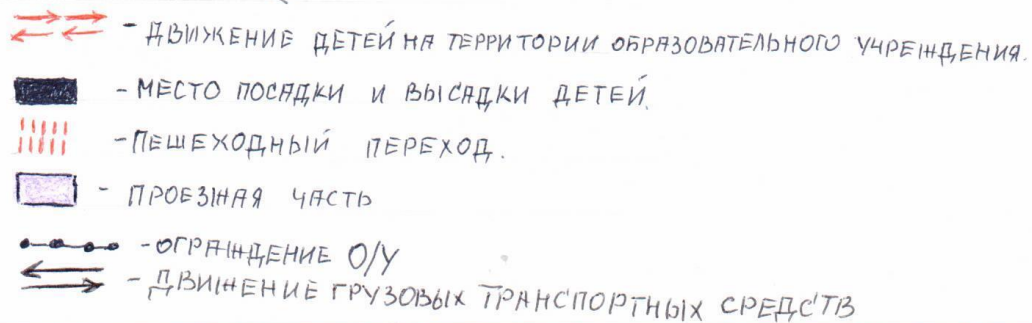 - ДВИЖЕНИЕ ДЕТЕЙ НА ТЕРРИТОРИИ ОБРАЗОВАТЕЛЬНОГО УЧРЕЖДЕНИЯ.
- МЕСТО ПОСАДКИ И ВЫСАДКИ ДЕТЕЙ.
- ПЕШЕХОДНЫЙ ПЕРЕХОД.
- ПРОЕЗЖАЯ ЧАСТЬ
- ОГРАЖДЕНИЕ О/У
- ДВИЖЕНИЕ ГРУЗОВЫХ ТРАНСПОРТНЫХ СРЕДСТВ